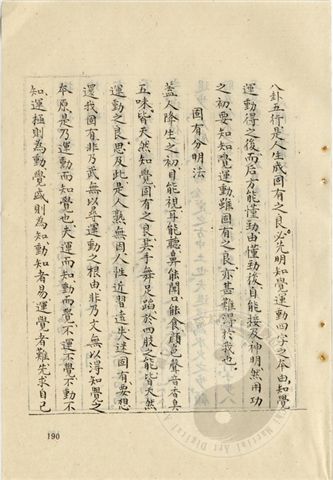 八卦五行是人生成固有之良必先明知覺運動四字之本由知覺
運動得之後而后方能懂勁由懂勁後自能接及神明然用功
之初要知知覺運動雖固有之良亦甚難得於我也
固有分明法
蓋人降生之初目能視耳能聽鼻能聞口能食顏色聲音香臭
五味皆天然知覺固有之良其手舞足蹈於四肢之能皆天然
運動之良思及此是人孰無因人性近習遠失迷固有要想
還我固有非乃武無以尋運動之根由非乃文無以得知覺之
本原是乃運動而知覺也夫運而知動而覺不運不覺不動不
知運極則為動覺盛則為知動知者易運覺者難先求自己
190